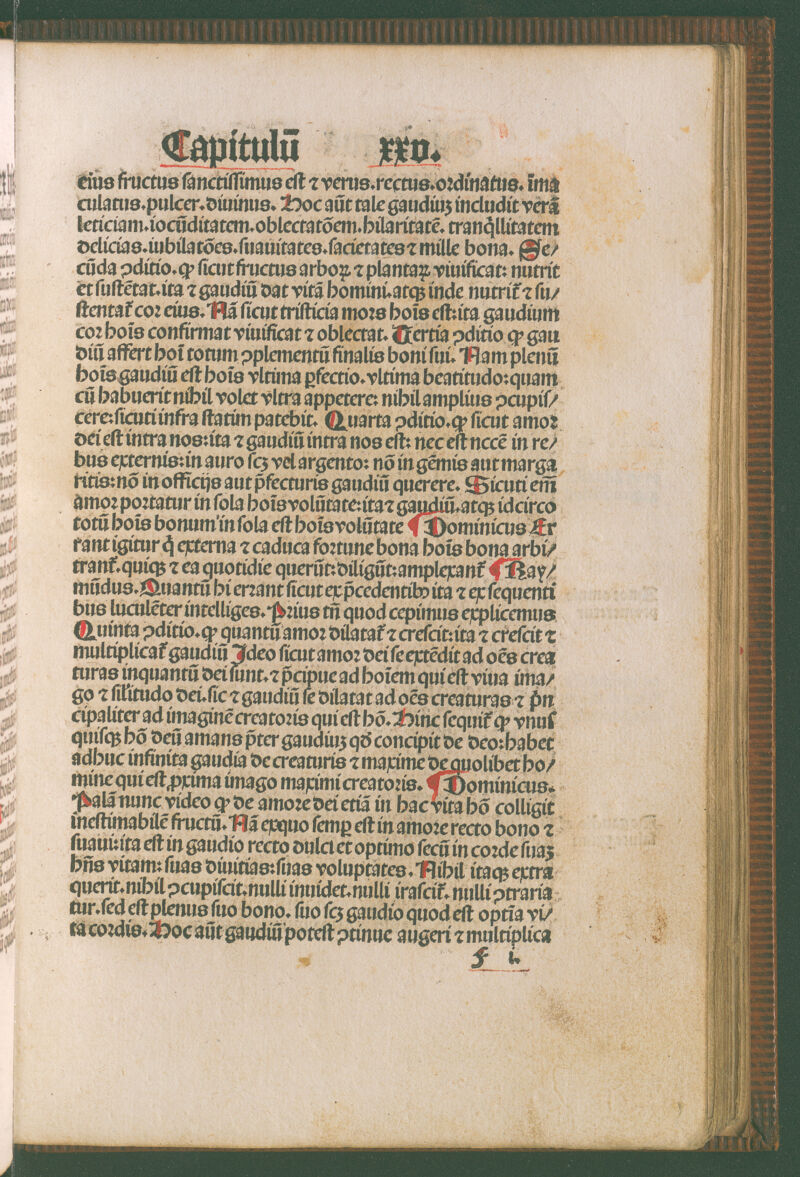 Capitulū xxv.
eius fructus ſanctiſſimus eſt ⁊ verus.rectus.ordinatus. īma
culatus.pulcer.diuinus. Hoc aūt tale gaudiuꝫ includit verā
leticiam.iocūditatem.oblectatōem.hilaritatē. tranq̇llitatem
delicias.iubilatōes.ſuauitates.ſacietates ⁊ mille bona. Se/
cūda ꝯditio.ꝙ ſicut fructus arboꝝ ⁊ plantaꝝ viuificat: nutrit
et ſuſtētat.ita ⁊ gaudiū dat vitā homini.atqꝫ inde nutrit̃ ⁊ ſu/
ſtentat̃ cor eius. Nā ſicut triſticia mors hoīs eſt:ita gaudium
cor hoīs confirmat viuificat ⁊ oblectat. Tertia ꝯditio ꝙ gau
diū affert hoī totum ꝯplementū finalis boni ſui. Nam plenū
hoīs gaudiū eſt hoīs vltima ꝑfectio.vltima beatitudo:quam
cū habuerit nihil volet vltra appetere: nihil amplius ꝯcupiſ/
cere:ſicuti infra ſtatim patebit. Quarta ꝯditio.ꝙ ſicut amor
dei eſt intra nos:ita ⁊ gaudiū intra nos eſt: nec eſt nccē in re/
bus externis:in auro ſcꝫ vel argento: nō in gēmis aut marga
ritis:nō in officijs aut p̄fecturis gaudiū querere. Sicuti em̄
amor portatur in ſola hoīs volūtate:ita ⁊ gaudiū.atqꝫ idcirco
totū hoīs bonum in ſola eſt hoīs volūtate ¶ Dominicus Er
rant igitur q̇ externa ⁊ caduca fortune bona hoīs bona arbi/
trant̃.quiqꝫ ⁊ ea quotidie querūt:diligūt:amplexant̃ ¶ Ray/
mūdus. Quantū hi errant ſicut ex p̄cedentibꝰ ita ⁊ ex ſequenti
bus luculēter intelliges. Prius tn̄ quod cepimus explicemus
Quinta ꝯditio.ꝙ quantū amor dilatat̃ ⁊ creſcit:ita ⁊ creſcit ⁊
multiplicat̃ gaudiū Ideo ſicut amor dei ſe extēdit ad oēs crea
turas inquantū dei ſunt.⁊ p̄cipue ad hoīem qui eſt viua ima/
go ⁊ ſilitudo dei.ſic ⁊ gaudiū ſe dilatat ad oēs creaturas ⁊ p̄n
cipaliter ad imaginē creatoris qui eſt hō. Hinc ſequit̃ ꝙ vnuſ
quiſqꝫ hō deū amans p̄ter gaudiuꝫ qď concipit de deo:habet
adhuc infinita gaudia de creaturis ⁊ maxime de quolibet ho/
mine qui eſt ꝓxima imago maximi creatoris. ¶ Dominicus.
Palā nunc video ꝙ de amore dei etiā in hac vita hō colligit
ineſtimabilē fructū. Nā exquo ſemꝑ eſt in amore recto bono ⁊
ſuaui:ita eſt in gaudio recto dulci et optimo ſecū in corde ſuaꝫ
hn̄s vitam: ſuas diuitias:ſuas voluptates. Nihil itaqꝫ extra
querit.nihil ꝯcupiſcit.nulli inuidet.nulli iraſcit̃. nulli ꝯtraria
tur.ſed eſt plenus ſuo bono. ſuo ſcꝫ gaudio quod eſt optīa vi/
ta cordis. Hoc aūt gaudiū poteſt ꝯtinue augeri ⁊ multiplica